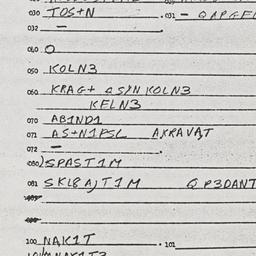 030 TOS+N . 031 - QAPGEL
032 -
040 O
050 KOLN3
060 KRAG+ QSYN KOLN3
KELN3
070 AB1ND1
071 AS+N1PSL AXRAVAT
072 -
080 SPAST1M
081 SKL8AJT1M Q P3DANT
100 NAK1T . 101